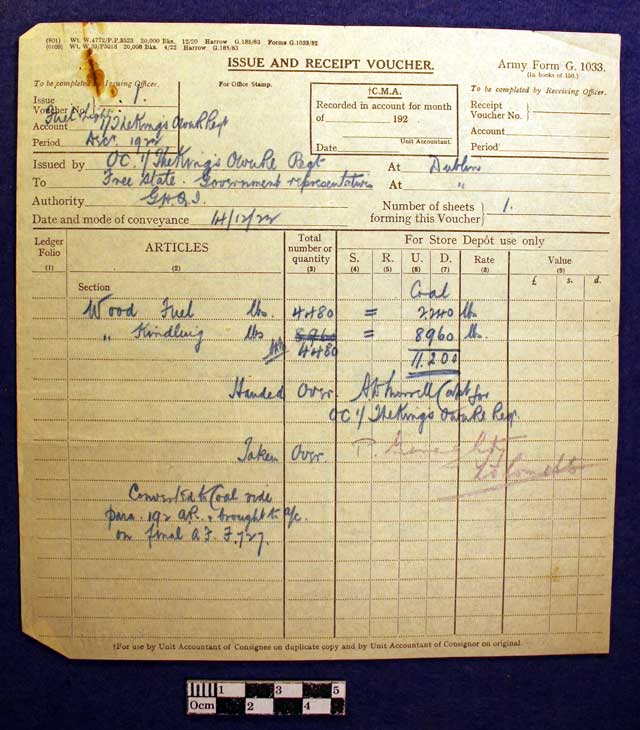 (801) Wt. W.4772/P.P.3523 20,000 Bks. 12/20 Harrow G.185/63 Forms G.1033/82
20,000 Bks. 4/22 Harrow G.185/63
ISSUE AND RECEIPT VOUCHER.
Army Form G. 1033.
(In books of 150.)
To be completed by Issuing Officer.
Issue
Voucher No. 1.
Fuel Light
Account 1/The Kings Own Regt
Period Decr. 1922
For Office Stamp.
†C.M.A.
Recorded in account for month
of 192
Unit Accountant.
Date
To be completed by Receiving Officer.
Receipt
Voucher No.
Account
Period
Issued by OC 1/ The Kings Own Re Regt At Dublin
To Free State. Government representatives At "
Authority G.H.Q.I.
Date and mode of conveyance 14/12/22
Number of sheets
forming this Voucher 1.
Ledger
Folio
(1)
ARTICLES
(2)
Total
number or
quantity
(3)
For Store Depôt use only
S. R. U. D. Rate Value
(4) (5) (6) (7) (8) (9)
£ s. d.
Section Coal
Wood Fuel lbs. 4480 = 2240 lbs
" Kindling lbs 8960 = 8960 lbs.
4480 11.200
Handed Over. Capt for
OC 1/ The Kings Own Re Regt.
Taken Over.
Converted to Coal vide
para. 192 A.R. & brought to a/c.
on final A.F. F.727.
†For use by Unit Accountant of Consignee on duplicate copy and by Unit Accountant of Consignor on original
0cm 1 2 3 4 5